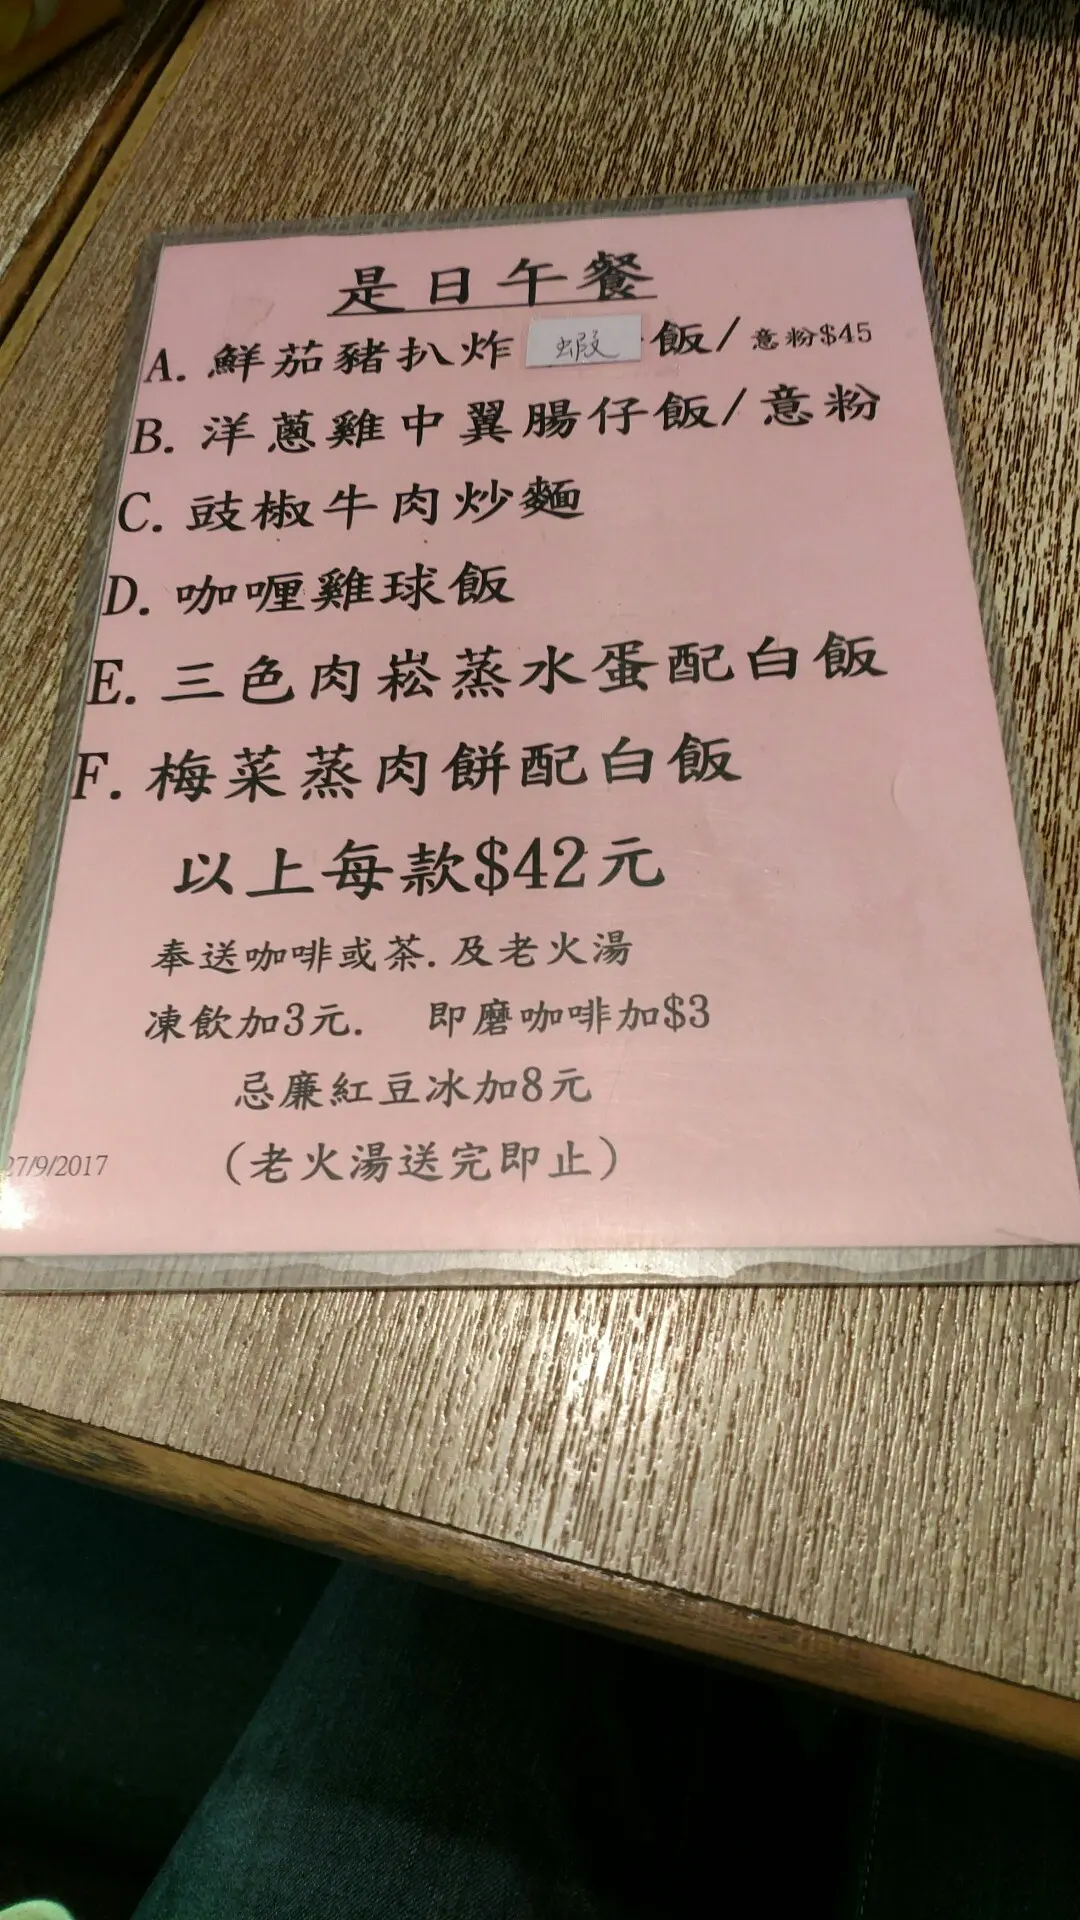 是日午餐
A. 鮮茄豬扒炸蝦飯/意粉$45
B. 洋蔥雞中翼腸仔飯/意粉
C. 豉椒牛肉炒麵
D. 咖喱雞球飯
E. 三色肉崧蒸水蛋配白飯
F. 梅菜蒸肉餅配白飯
以上每款$42元
奉送咖啡或茶.及老火湯
凍飲加3元. 即磨咖啡加$3
忌廉紅豆冰加8元
27/9/2017 (老火湯送完即止)